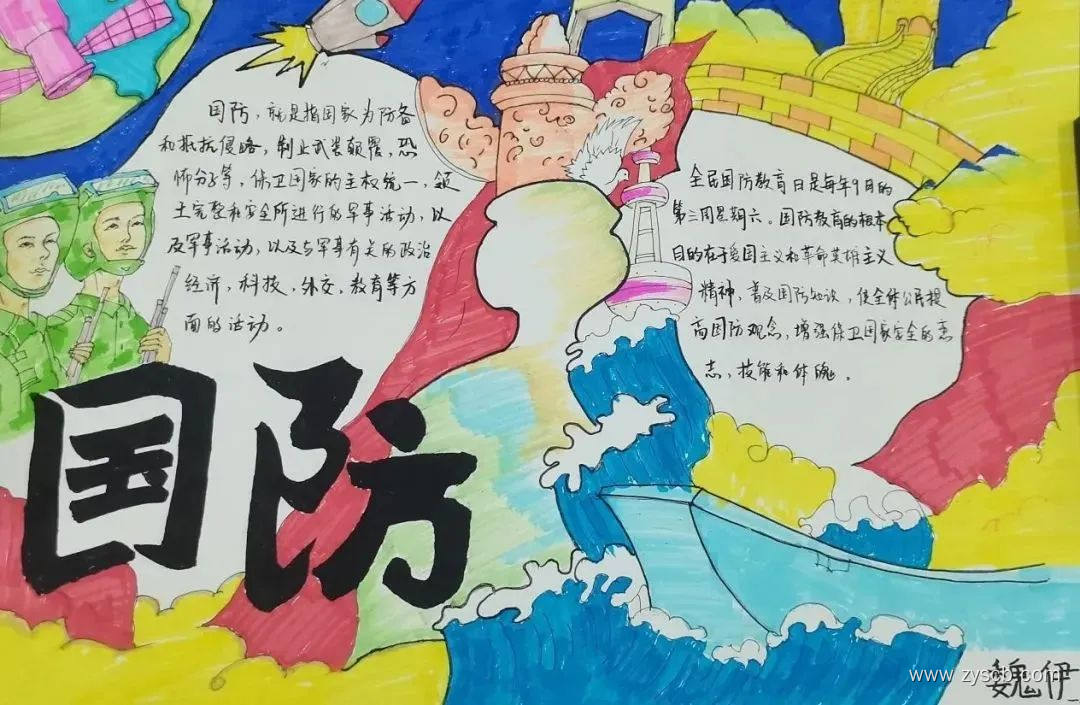 国防，就是指国家为防备
和抵抗侵略，制止武装颠覆，恐
怖分子等，保卫国家的主权统一，领
土完整和安全所进行的军事活动，以
及军事活动，以及与军事有关的政治
经济，科技，外交，教育等方
面的活动。
全民国防教育日是每年9月的
第三周星期六。国防教育的根本
目的在于爱国主义和革命英雄主义
精神，普及国防知识，使全体公民提
高国防观念，增强保卫国家安全的意
志，技能和体魄。
国防
www.zyscb.com
魏伊